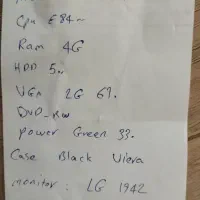 Cpu E84~
Ram 4G
HDD 5~
VGA 2G 6?.
DVD_RW
Power Green 33.
Case Black Viera
monitor: LG 1942